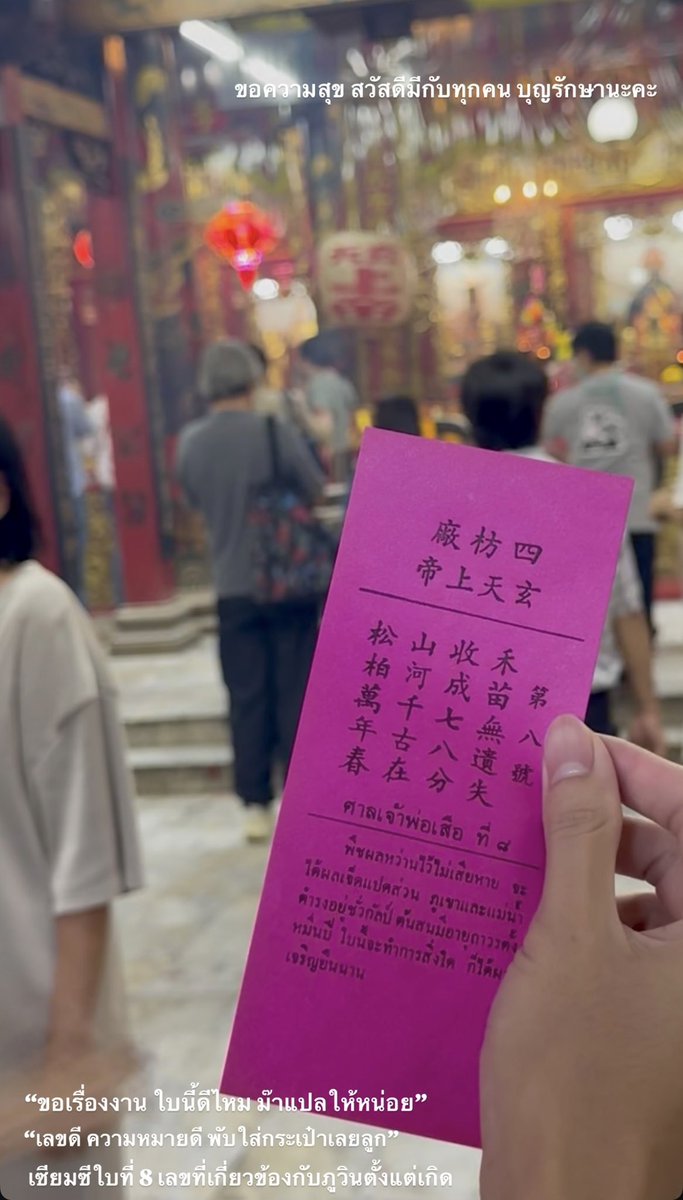 ขอความสุข สวัสดีมีกับทุกคน บุญรักษานะคะ
四枋廠
玄天上帝
第八號
禾苗無遺失
收成七八分
山河千古在
松柏萬年春
ศาลเจ้าพ่อเสือ ที่ ๘
พืชผลหว่านไว้ไม่เสียหาย จะ
ได้ผลเจ็ดแปดส่วน ภูเขาและแม่น้ำ
ดำรงอยู่ชั่วกัลป์ ต้นสนมีอายุถาวรตั้ง
หมื่นปี ใบนี้จะทำการสิ่งใด ก็ได้ผ
เจริญยืนนาน
“ขอเรื่องงาน ใบนี้ดีไหม ม๊าแปลให้หน่อย”
“เลขดี ความหมายดี พับใส่กระเป๋าเลยลูก”
เซียมซีใบที่ 8 เลขที่เกี่ยวข้องกับภูวินตั้งแต่เกิด